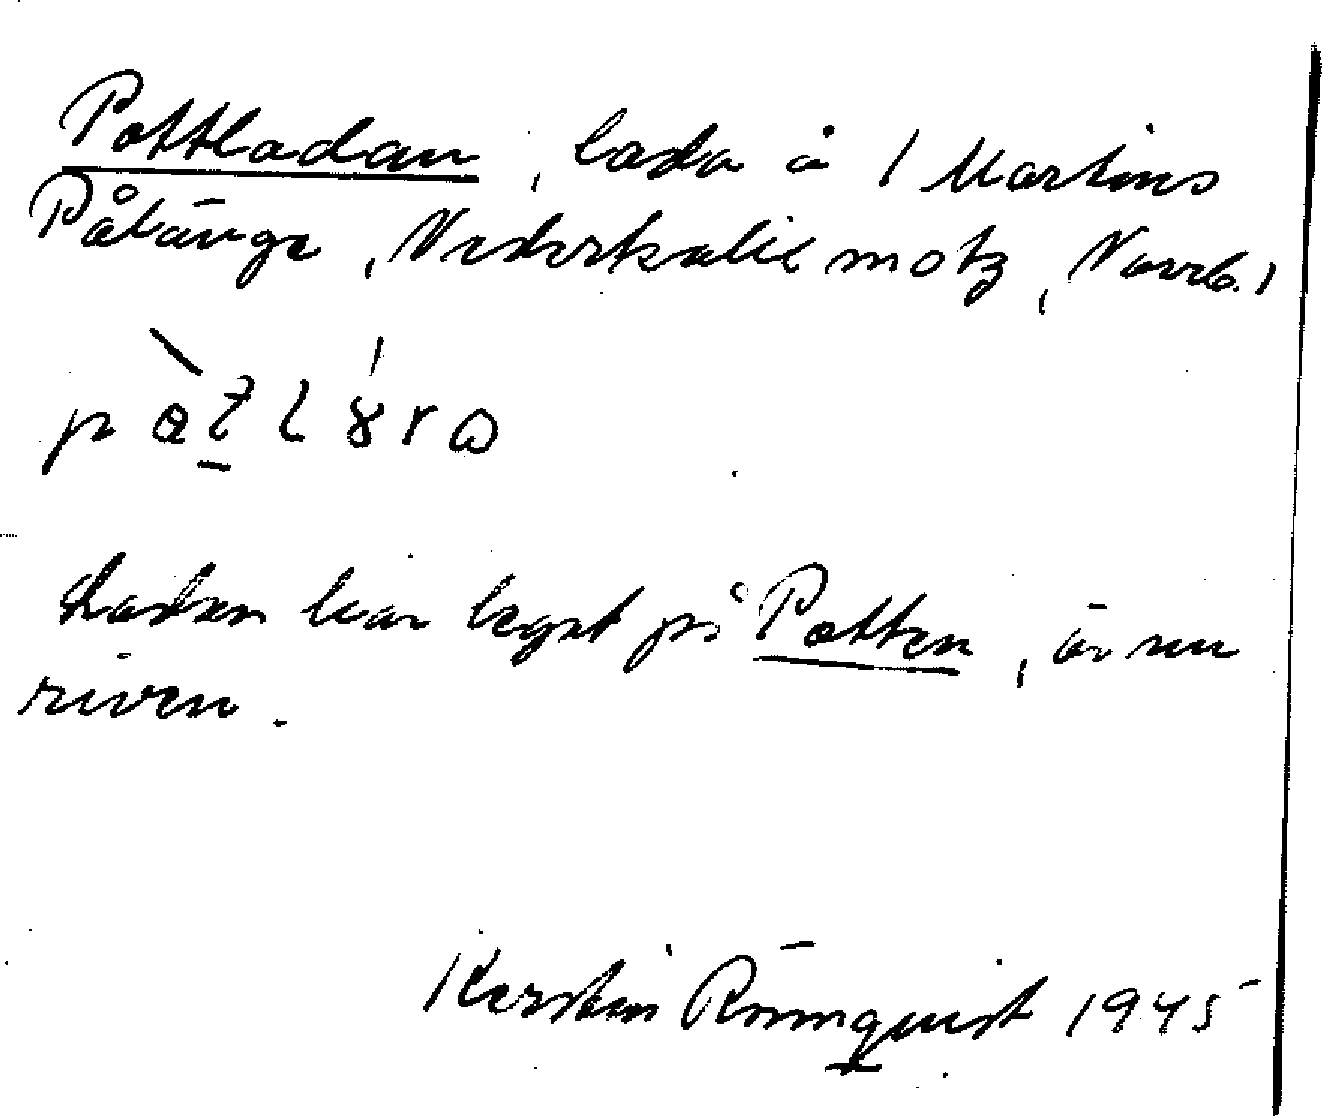 Pottladan, lada å 1 Martins
Pålänge, Nederkalix motz, Norrb. l
Ladan har legat på Potten, är nu
riven.
Kerstin Rönnquist 1945